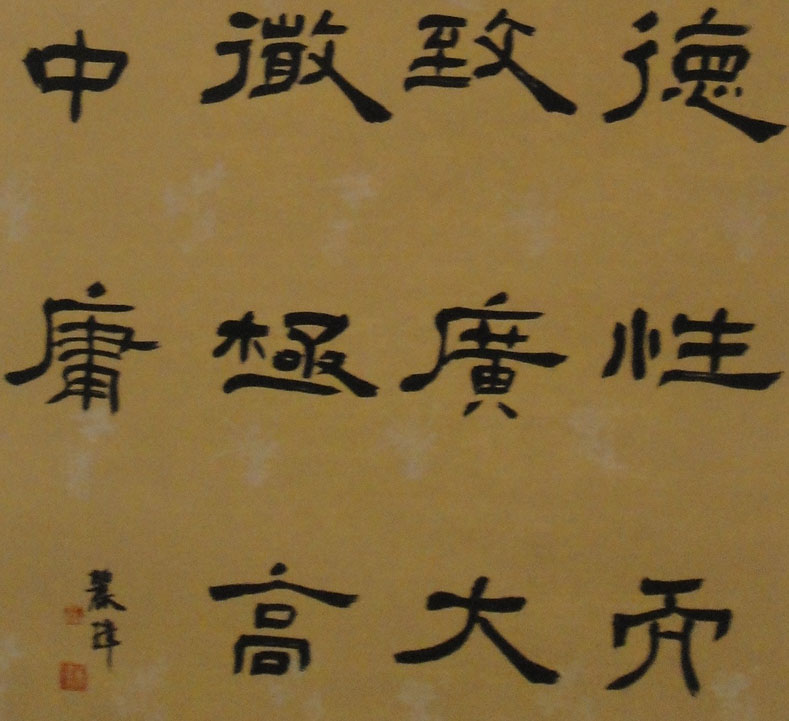 德性而
致廣大
微極高
中庸